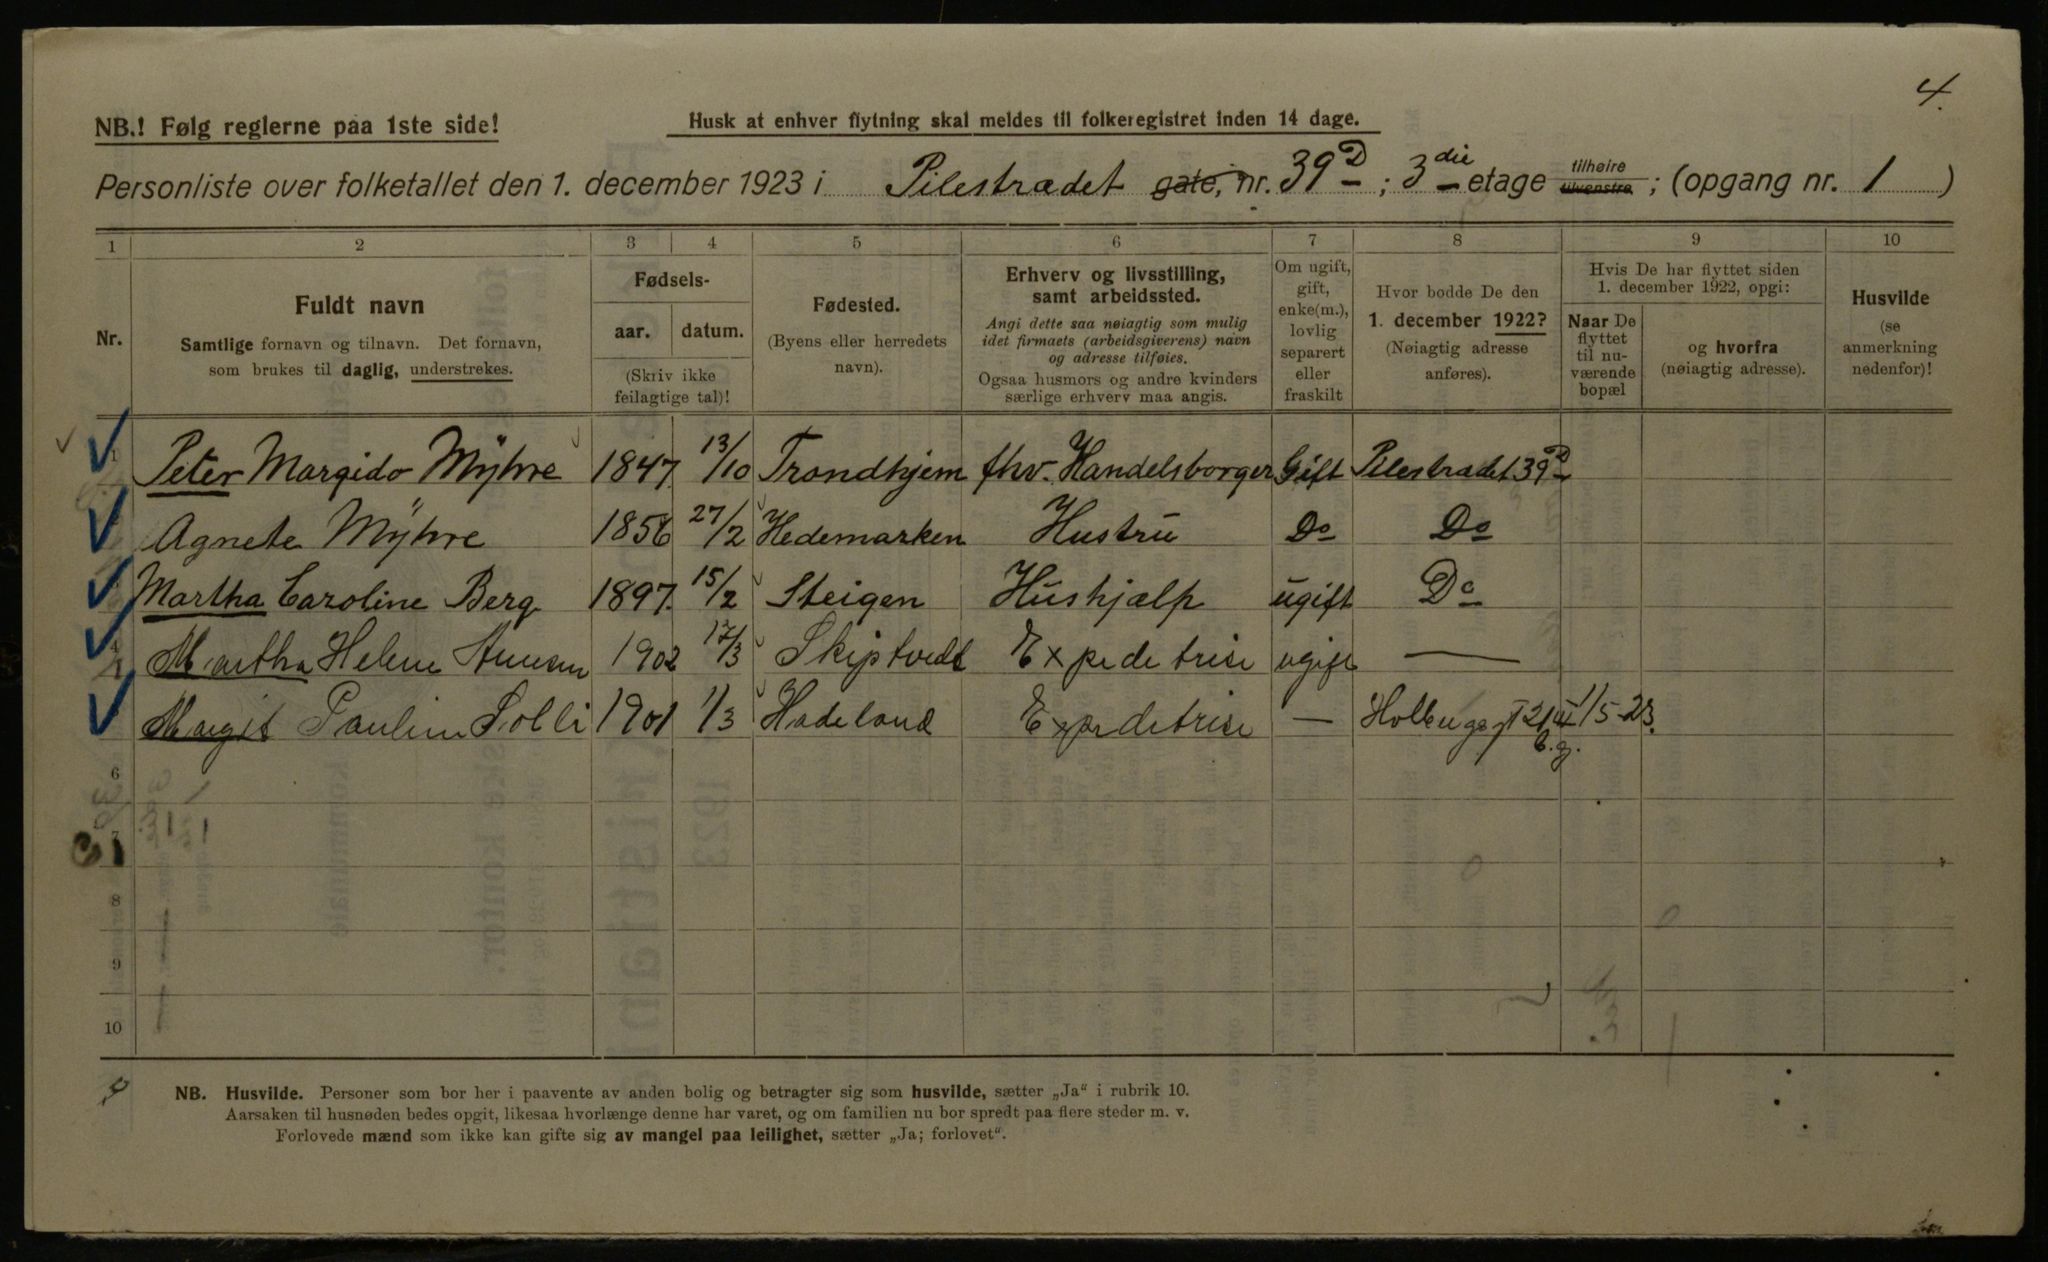 4.
NB.! Følg reglerne paa 1ste side!
Husk at enhver flytning skal meldes til folkeregistret inden 14 dage.
Personliste over folketallet den 1. december 1923 i Pilestrædet gate, nr. 39 D ; 3 die etage tilhøire tilvenstre ; (opgang nr. 1 )
1 2 3 4 5 6 7 8 9 10
Nr.
Fuldt navn
Samtlige fornavn og tilnavn. Det fornavn,
som brukes til daglig, understrekes.
Fødsels-
aar. datum.
(Skriv ikke
feilagtige tal)!
Fødested.
(Byens eller herredets
navn).
Erhverv og livsstilling,
samt arbeidssted.
Angi dette saa nøiagtig som mulig
idet firmaets (arbeidsgiverens) navn
og adresse tilføies.
Ogsaa husmors og andre kvinders
særlige erhverv maa angis.
Om ugift,
gift,
enke(m.),
lovlig
separert
eller
fraskilt
Hvor bodde De den
1. december 1922?
(Nøiagtig adresse
anføres).
Hvis De har flyttet siden
1. december 1922, opgi:
Naar De
flyttet
til nu-
værende
bopæl
og hvorfra
(nøiagtig adresse).
Husvilde
(se
anmerkning
nedenfor)!
1 Peter Margido Mÿhre 1847 13/10 Trondhjem fhv. Handelsborger Gift Pilestrædet 39 D
Agnete Mÿhre 1856 27/2 Hedemarken Hustru Do Do
Martha Caroline Berg 1897 15/2 Steigen Hushjælp ugift Do
4 Martha Helene 1902 17/3 Skiptvedt Expeditrise ugift —
Margit Pauline Solli 1901 1/3 Hadeland Expeditrise — 1/5-23.
6
7
8
9
10
NB. Husvilde. Personer som bor her i paavente av anden bolig og betragter sig som husvilde, sætter „Ja“ i rubrik 10.
Aarsaken til husnøden bedes opgit, likesaa hvorlænge denne har varet, og om familien nu bor spredt paa flere steder m. v.
Forlovede mænd som ikke kan gifte sig av mangel paa leilighet, sætter „Ja; forlovet“.